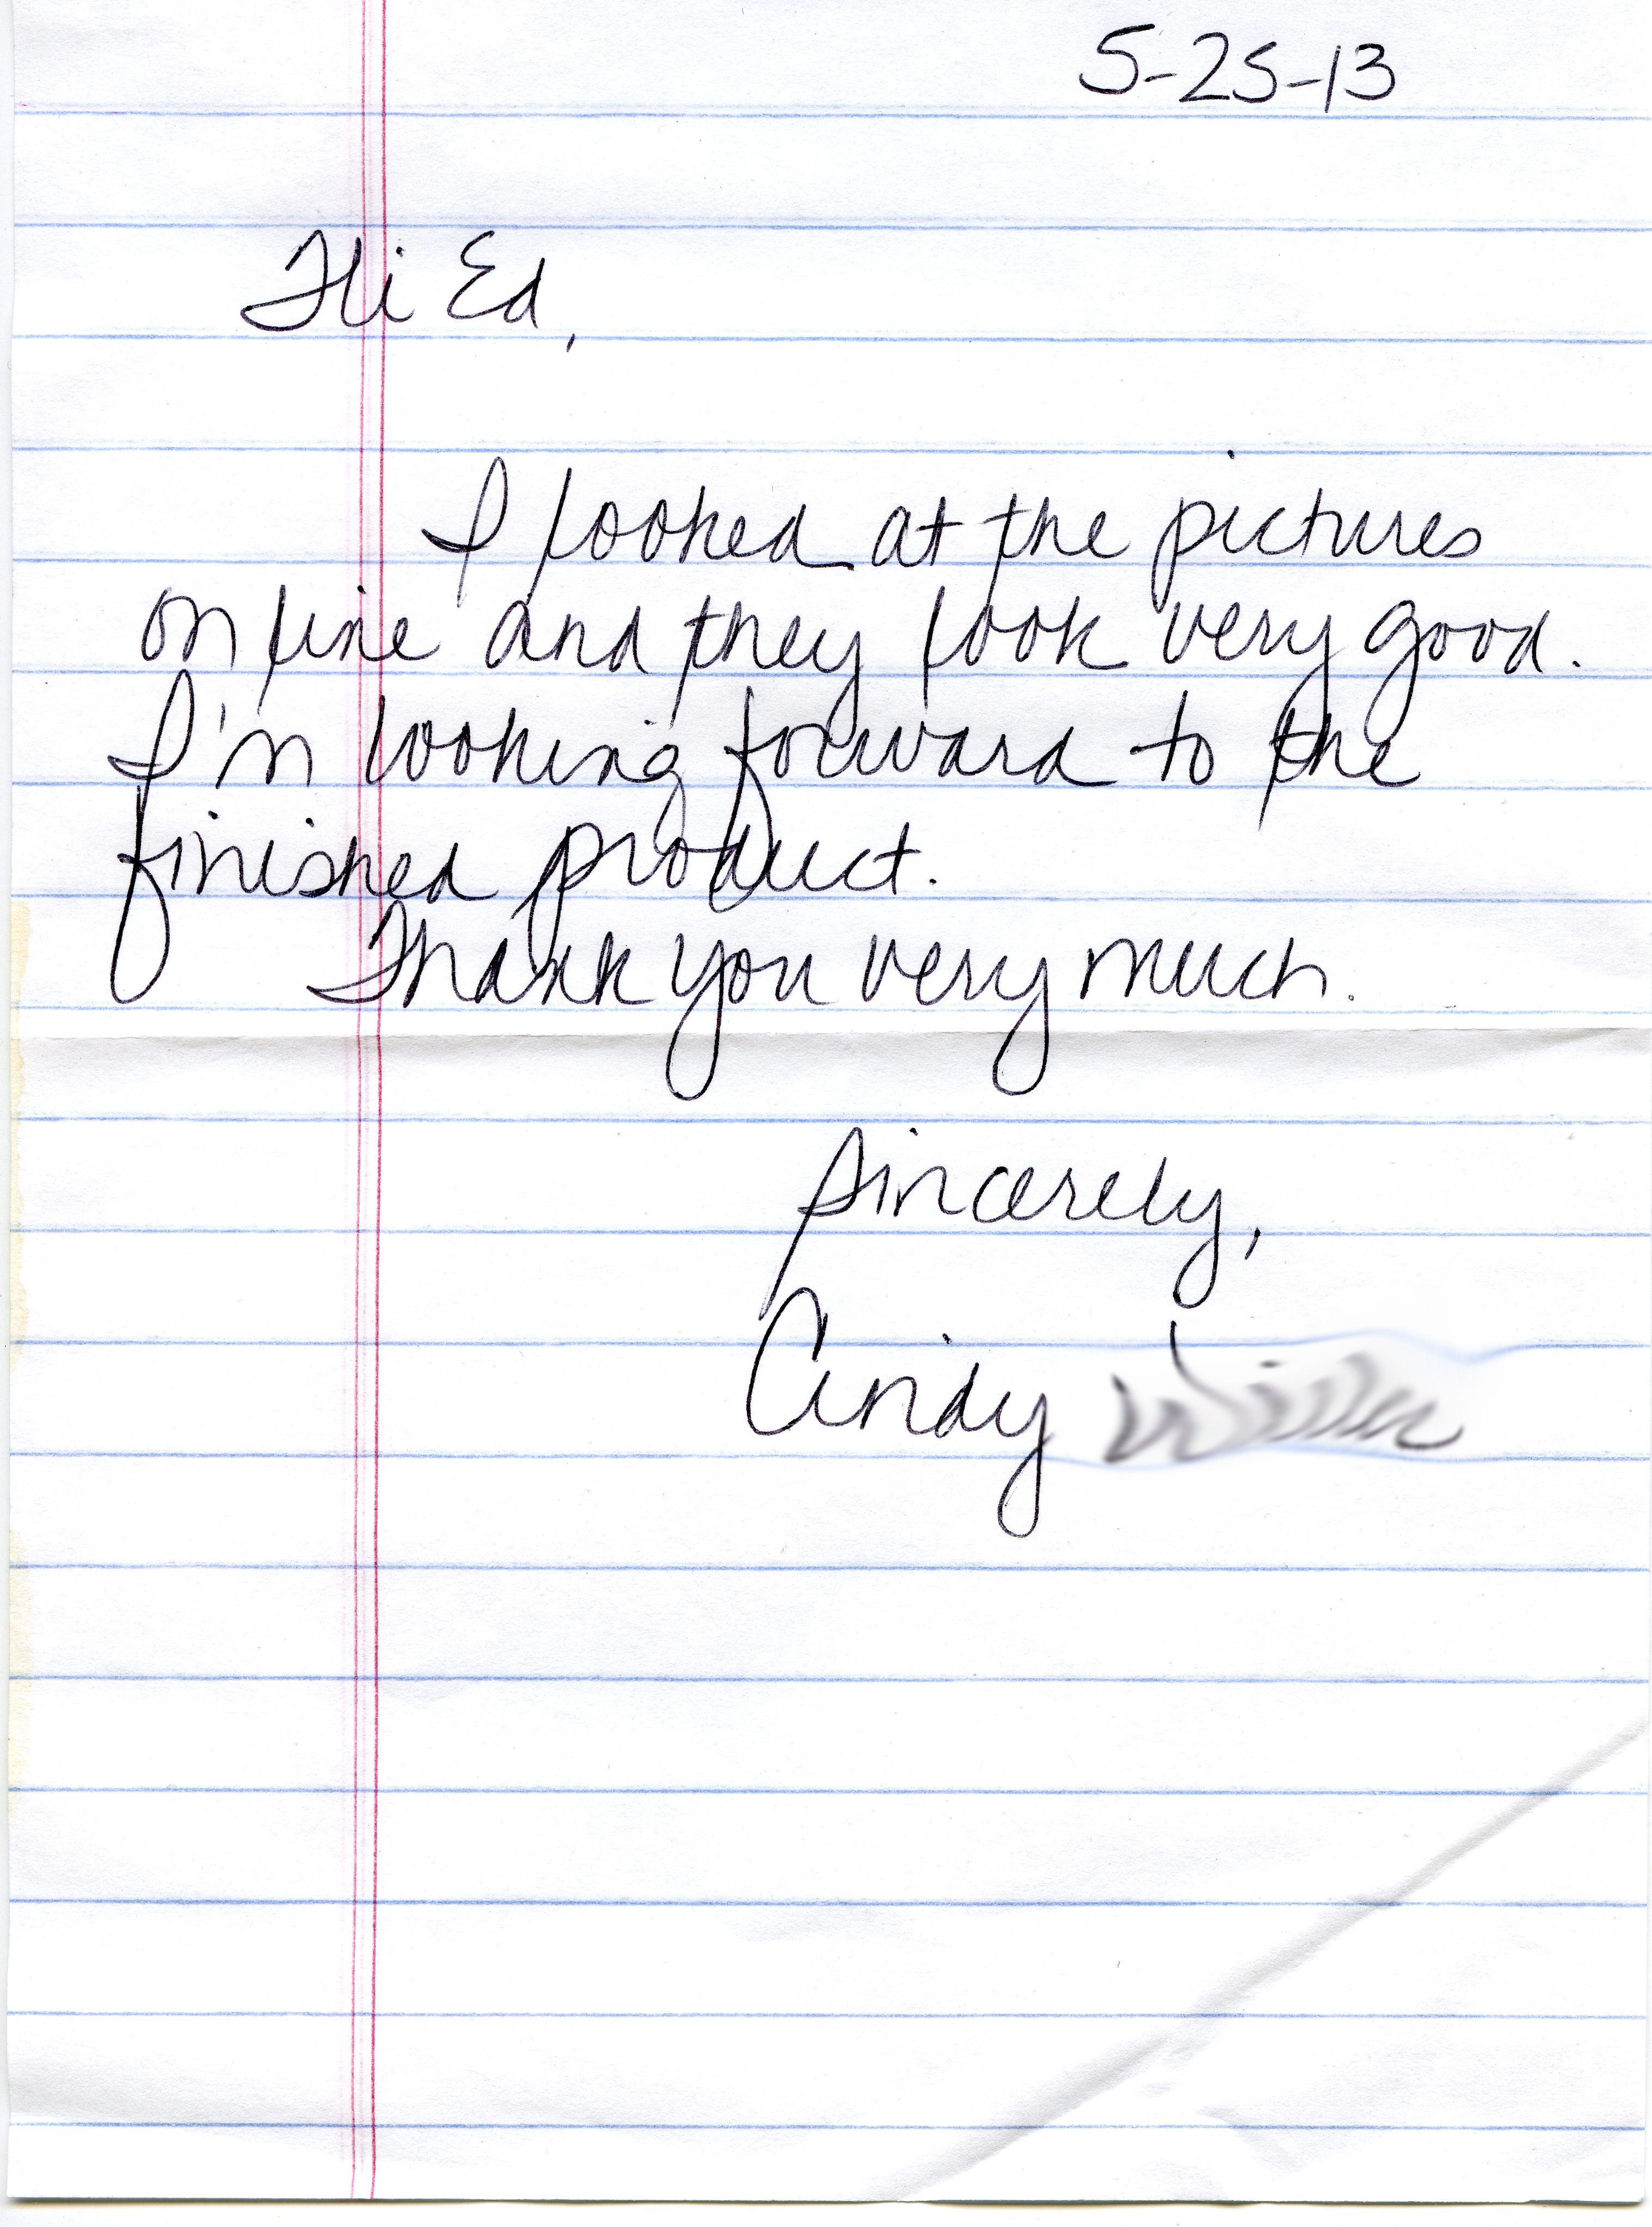 5-25-13
Hi Ed,
I looked at the pictures
on line and they look very good.
I'm looking forward to the
finished product.
Thank you very much.
Sincerely,
Cindy